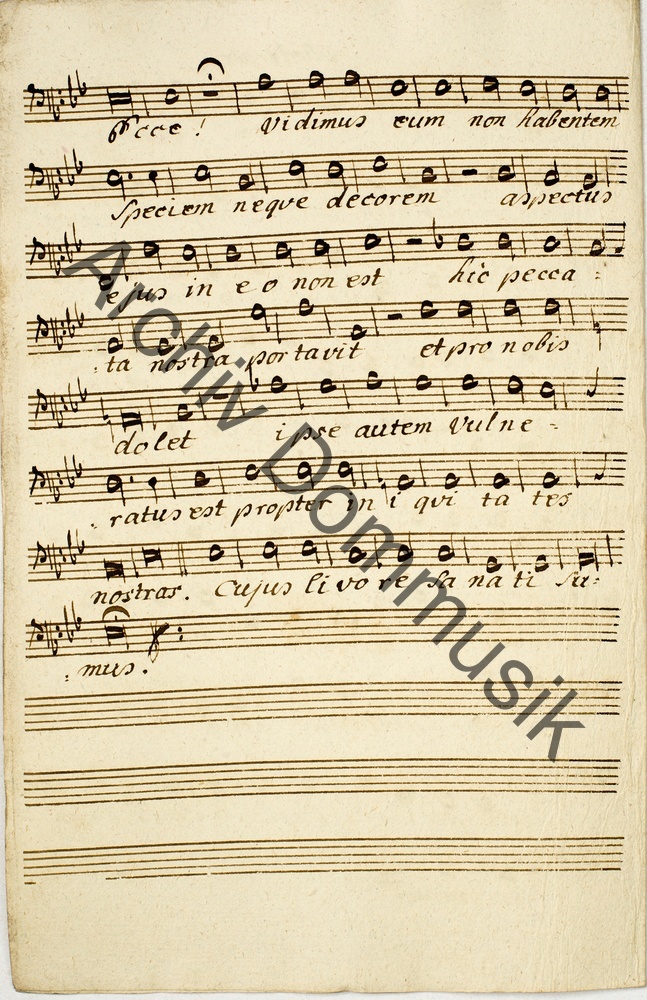 Ecce! Vidimus eum non habentem
Speciem neqve decorem aspectus
ejus in eo non est hic pecca:
:ta nostra portavit et pro nobis
dolet ipse autem Vulne-
:ratus est propter in i qvi ta tes
nostras. Cujus li vo re sa na ti su:
:mus.
Archiv Dommusik